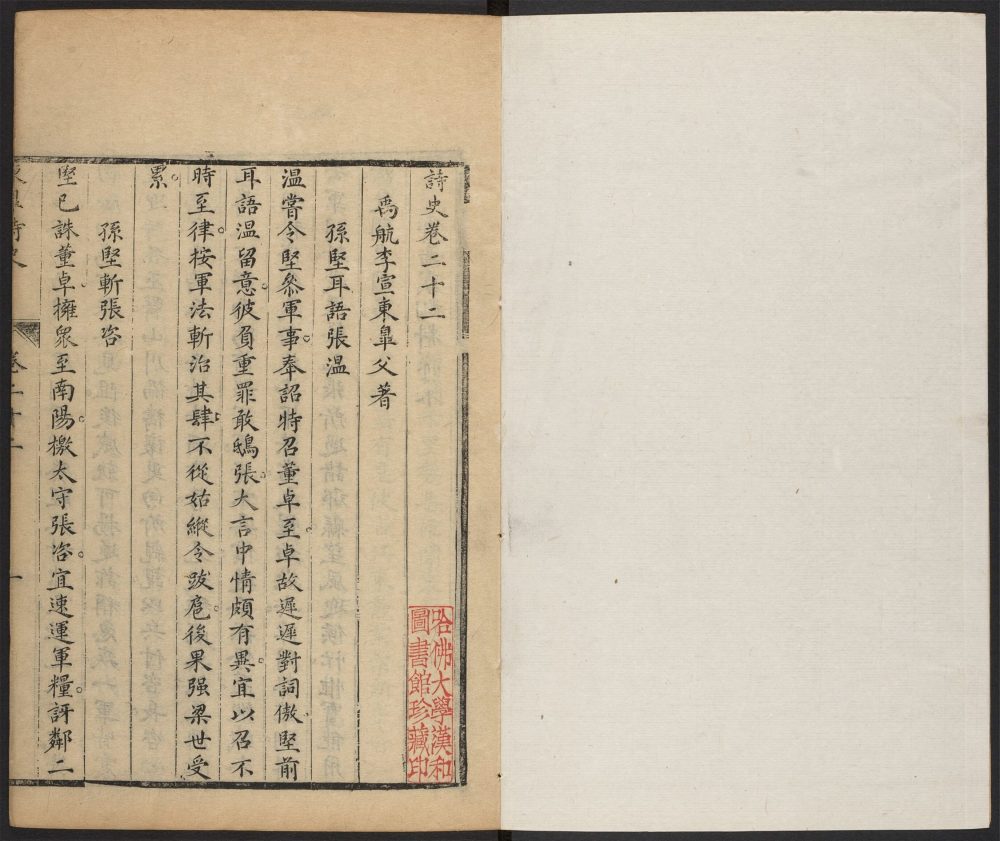 詩史卷二十二
禹航李宣東臯父著
孫堅耳語張溫
溫嘗令堅叅軍事。奉詔特召董卓至。卓故遲遲對詞傲。堅前
耳語溫留意。彼負重罪敢鴟張。大言中情頗有異。宜以召不
時至。律按軍法斬治其肆。不從姑縱令跋扈。後果强梁世受
累。
孫堅斬張咨
堅已誅董卓。擁衆至南陽。檄太守張咨。宜速運軍糧。訝鄰二
詩史
卷二十二
一
哈佛大學漢和
圖書館珍藏印